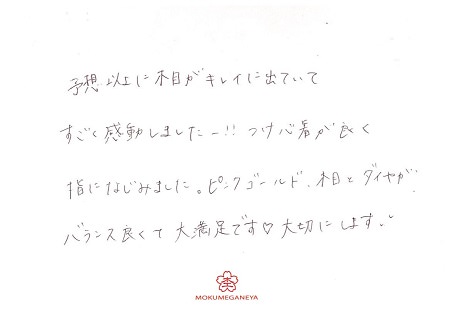 予想以上に木目がキレイに出ていて
すごく感動しましたー!! つけ心着が良く
指になじみました。ピンクゴールド、木目とダイヤが
バランス良くて大満足です♡大切にします。
MOKUMEGANEYA